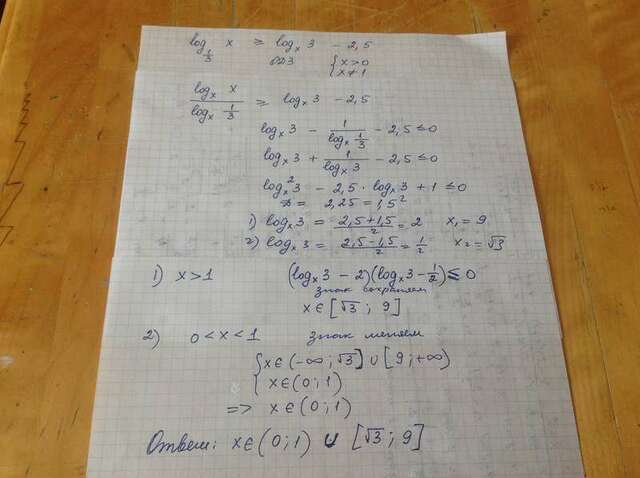 log_{1/3} x ≥ log_x 3 − 2,5
ОДЗ { x>0
x≠1
log_x x / log_x 1/3 ≥ log_x 3 − 2,5
log_x 3 − 1/(log_x 1/3) − 2,5 ≤ 0
log_x 3 + 1/(log_x 3) − 2,5 ≤ 0
log_x^2 3 − 2,5 · log_x 3 + 1 ≤ 0
D = 2,25 = 1,5²
1) log_x 3 = (2,5+1,5)/2 = 2 x₁ = 9
2) log_x 3 = (2,5−1,5)/2 = 1/2 x₂ = √3
1) x>1 (log_x 3 − 2)(log_x 3 − 1/2) ≤ 0
знак сохраняем
x∈[√3; 9]
2) 0<x<1 знак меняем
{ x∈(−∞; √3] ∪ [9; +∞)
{ x∈(0; 1)
=> x∈(0; 1)
Ответ: x∈(0; 1) ∪ [√3; 9]